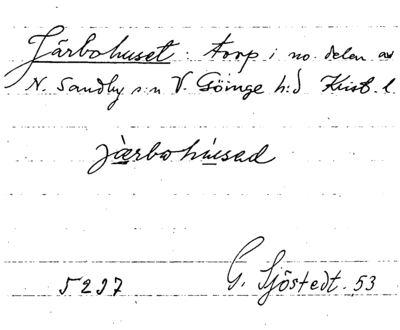 Järbohuset: torp i no. delen av
N. Sandby sn V. Göinge h:d Krist. l.
jàrbohùsad
5297 G. Sjöstedt. 53